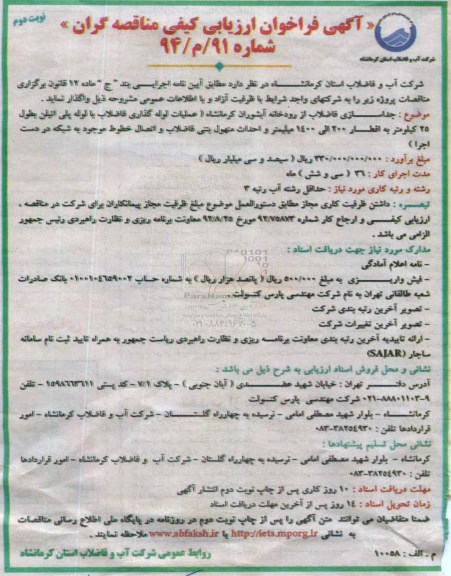 نوبت دوم
« آگهی فراخوان ارزیابی کیفی مناقصه گران »
شماره ۹۱/م/۹۴
شرکت آب و فاضلاب استان کرمانشاه
شرکت آب و فاضلاب استان کرمانشاه در نظر دارد مطابق آیین نامه اجرایی بند " ج " ماده ۱۲ قانون برگزاری
مناقصات پروژه زیر را به شرکتهای واجد شرایط با ظرفیت آزاد و با اطلاعات عمومی مشروحه ذیل واگذار نماید .
موضوع : جداسازی فاضلاب از رودخانه آبشوران کرمانشاه ( عملیات لوله گذاری فاضلاب با لوله پلی اتیلن بطول
۲۵ کیلومتر به اقطار ۲۰۰ الی ۱۴۰۰ میلیمتر و احداث منهول بتنی فاضلاب و اتصال خطوط موجود به شبکه در دست
اجرا )
مبلغ برآورد : ۳۳۰/۰۰۰/۰۰۰/۰۰۰ ریال ( سیصد و سی میلیارد ریال )
مدت اجرای کار : ۳۶ ( سی و شش ) ماه
رشته و رتبه کاری مورد نیاز : حداقل رشته آب رتبه ۳
تبصره : داشتن ظرفیت کاری مجاز مطابق دستورالعمل موضوع مبلغ ظرفیت مجاز پیمانکاران برای شرکت در مناقصه ،
ارزیابی کیفی و ارجاع کار شماره ۹۲/۷۵۸۷۳ مورخ ۹۲/۸/۲۵ معاونت برنامه ریزی و نظارت راهبردی رئیس جمهور
الزامی می باشد .
مدارک مورد نیاز جهت دریافت اسناد :
- نامه اعلام آمادگی
- فیش واریزی به مبلغ ۵۰۰/۰۰۰ ریال ( پانصد هزار ریال ) به شماره حساب ۰۱۰۰۱۰۴۶۵۹۰۰۲ بانک صادرات
شعبه طالقانی تهران به نام شرکت مهندسی پارس کنسولت
- تصویر آخرین رتبه بندی شرکت
- تصویر آخرین تغییرات شرکت
- ارائه تاییدیه آخرین رتبه بندی معاونت برنامه ریزی و نظارت راهبردی ریاست جمهور به همراه تایید ثبت نام سامانه
ساجار (SAJAR)
نشانی و محل فروش اسناد ارزیابی به شرح ذیل می باشد :
آدرس دفتر تهران : خیابان شهید عضدی ( آبان جنوبی ) - پلاک ۷/۱ - کد پستی ۱۵۹۸۶۶۳۶۱۱ - تلفن
۰۲۱-۸۸۸۰۱۱۰۳-۹ شرکت مهندسی پارس کنسولت
کرمانشاه - بلوار شهید مصطفی امامی - نرسیده به چهارراه گلستان - شرکت آب و فاضلاب کرمانشاه - امور
قراردادها تلفن : ۰۸۳-۳۸۲۵۴۹۳۰
نشانی محل تسلیم پیشنهادها :
کرمانشاه - بلوار شهید مصطفی امامی - نرسیده به چهارراه گلستان - شرکت آب و فاضلاب کرمانشاه - امور قراردادها
تلفن : ۰۸۳-۳۸۲۵۴۹۳۰
مهلت دریافت اسناد : ۱۰ روز کاری پس از چاپ نوبت دوم انتشار آگهی
زمان تحویل اسناد : ۱۴ روز پس از آخرین مهلت دریافت اسناد
ضمنا متقاضیان می توانند متن آگهی را پس از چاپ نوبت دوم در روزنامه در پایگاه ملی اطلاع رسانی مناقصات
به نشانی http://iets.mporg.ir یا www.abfaksh.ir ملاحظه نمایند .
روابط عمومی شرکت آب و فاضلاب استان کرمانشاه
م . الف : ۱۰۰۵۸